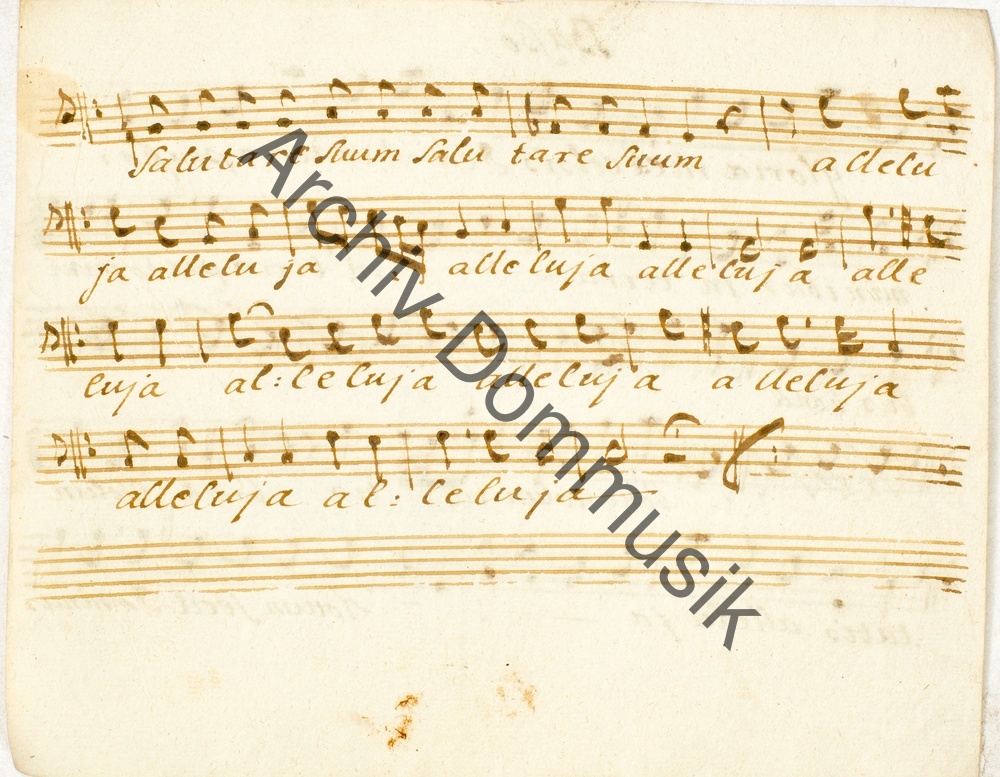 Salutare suum salu tare suum allelu
ja allelu ja alleluja alleluja alle
luja al:leluja alleluja alleluja
alleluja al:leluja
Archiv Dommusik